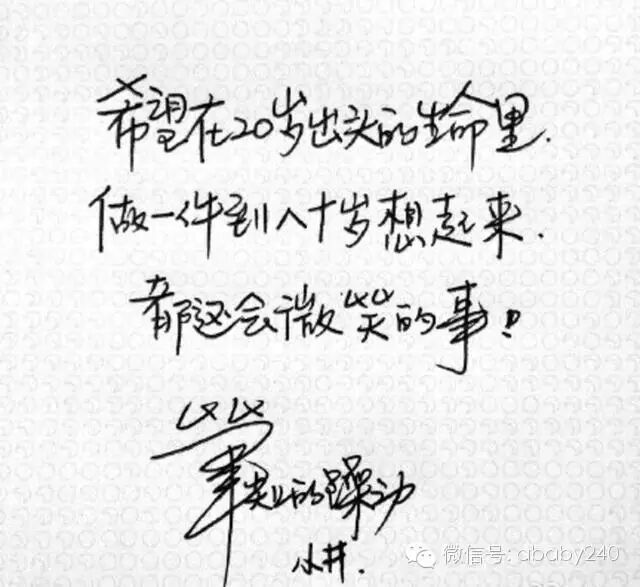 希望在20岁出头的生命里.
做一件到八十岁想起来.
都还会微笑的事!
毕业的躁动
小井.
微信号: ababy240